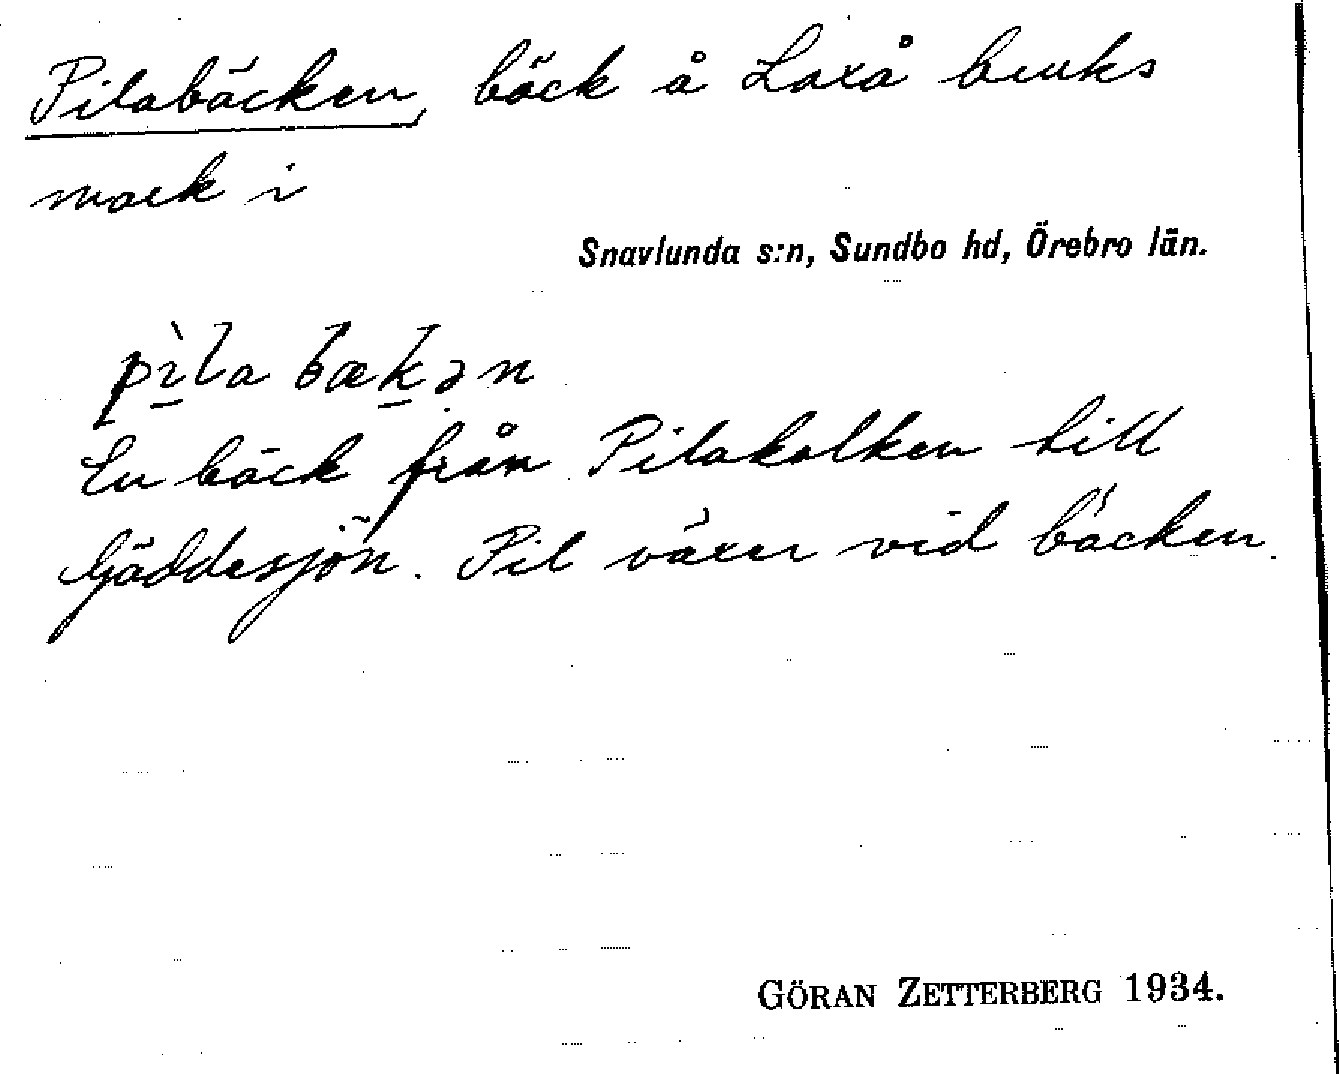 Pilabäcken, bäck å Laxå bruks
mark i
Snavlunda s:n, Sundbo hd, Örebro län.
pìla bækən
En bäck från Pilakalken till
Gäddesjön. Pil växer vid bäcken.
GÖRAN ZETTERBERG 1934.